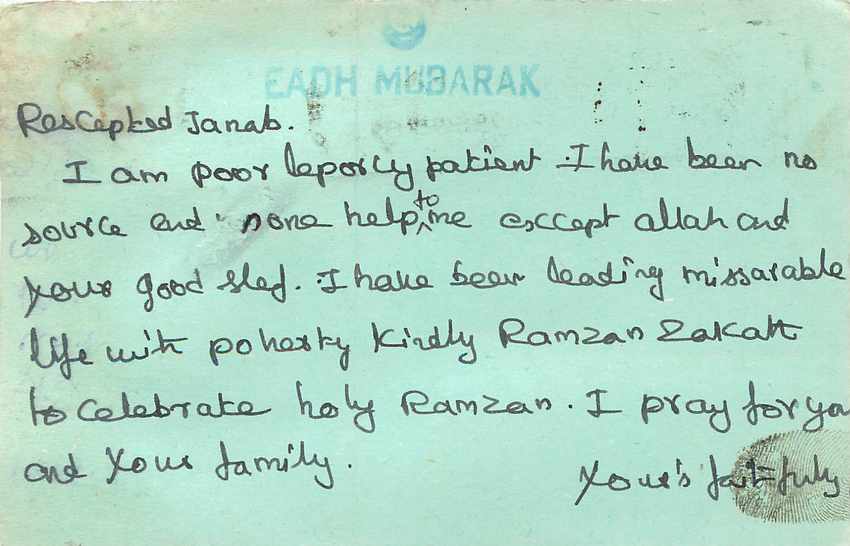 EADH MUBARAK
Rescepted Janab.
I am poor leporcy patient. I have been no
source and none help to me exccept allah and
your good slef. I have been leading missarable
life with poherty Kindly Ramzan Zakatt
to celebrate holy Ramzan. I pray for you
and your family.
your's faithfuly